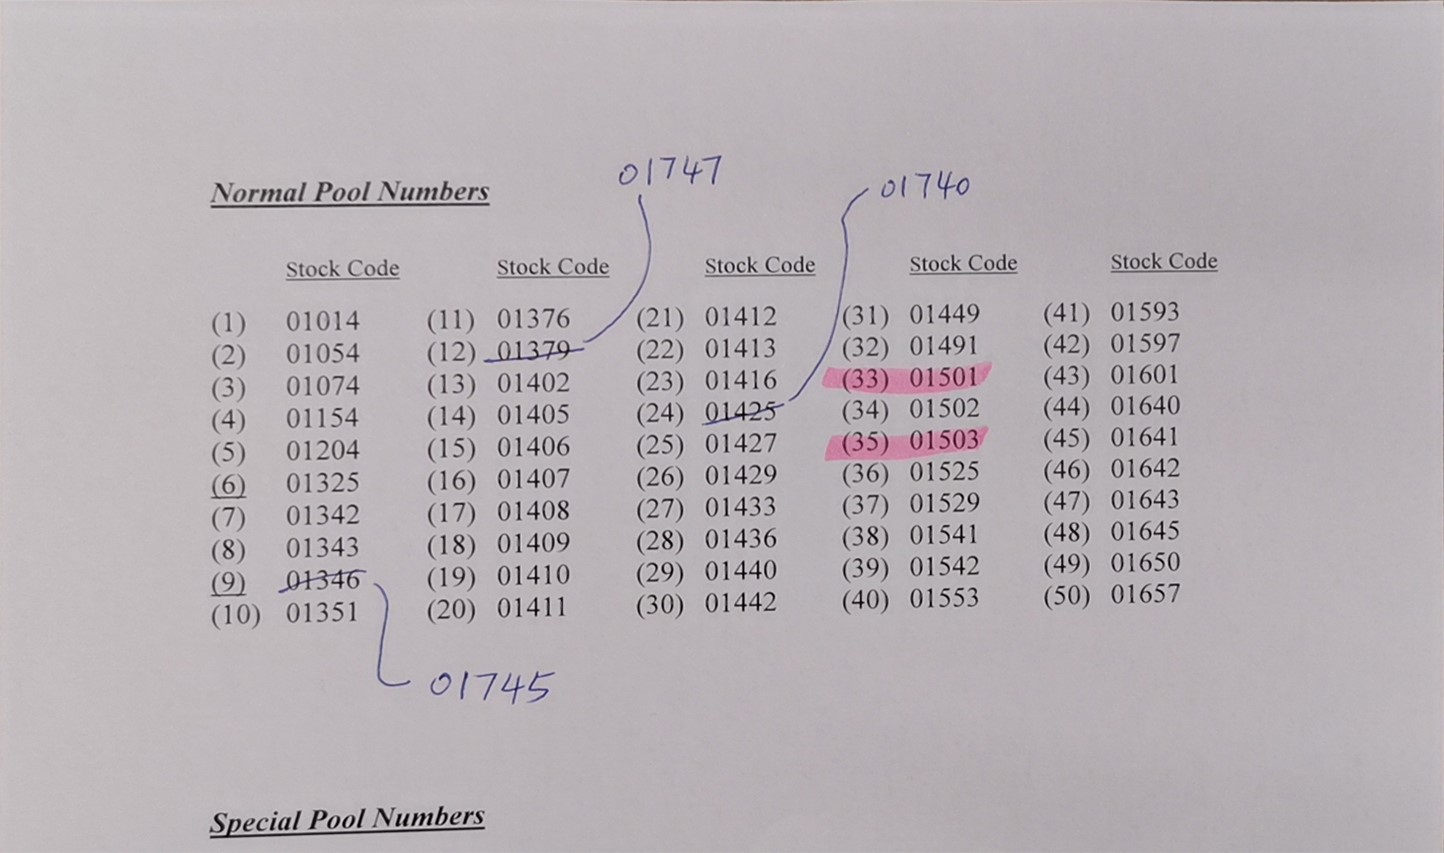 01747
01740
Normal Pool Numbers
Stock Code Stock Code Stock Code Stock Code Stock Code
(1) 01014 (11) 01376 (21) 01412 (31) 01449 (41) 01593
(2) 01054 (12) 01379 (22) 01413 (32) 01491 (42) 01597
(3) 01074 (13) 01402 (23) 01416 (33) 01501 (43) 01601
(4) 01154 (14) 01405 (24) 01425 (34) 01502 (44) 01640
(5) 01204 (15) 01406 (25) 01427 (35) 01503 (45) 01641
(6) 01325 (16) 01407 (26) 01429 (36) 01525 (46) 01642
(7) 01342 (17) 01408 (27) 01433 (37) 01529 (47) 01643
(8) 01343 (18) 01409 (28) 01436 (38) 01541 (48) 01645
(9) 01346 (19) 01410 (29) 01440 (39) 01542 (49) 01650
(10) 01351 (20) 01411 (30) 01442 (40) 01553 (50) 01657
01745
Special Pool Numbers